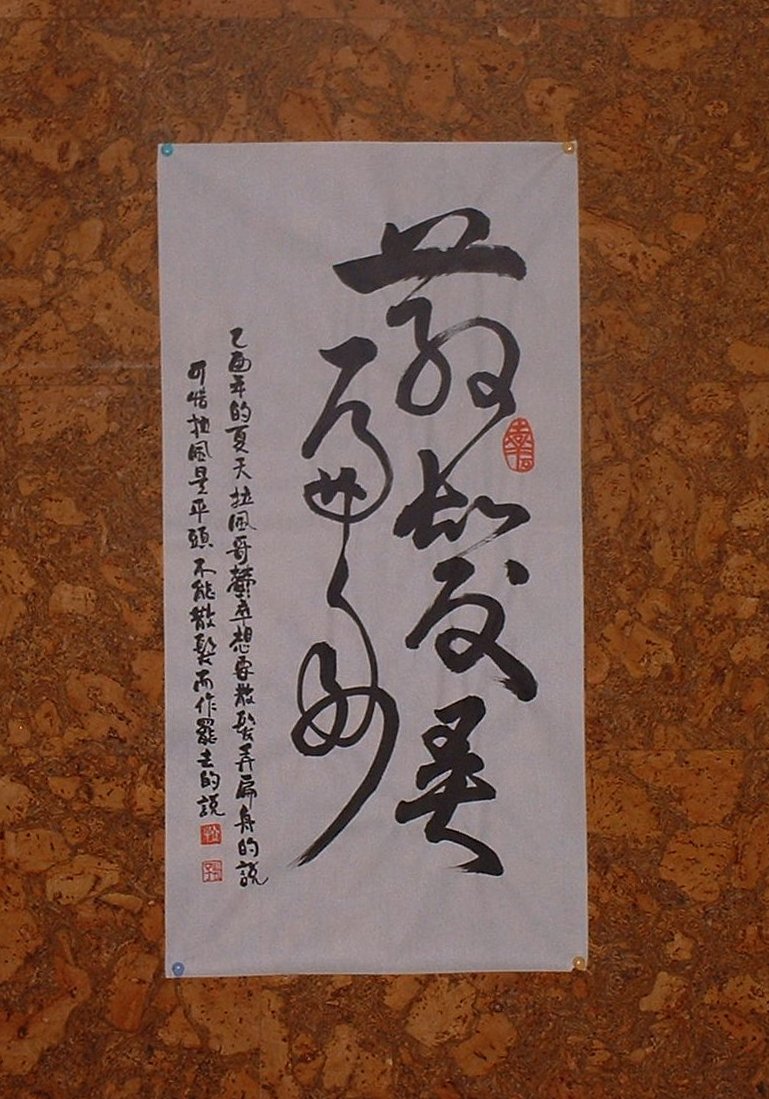 散髮弄
扁舟
乙酉年的夏天拉風哥鬱卒想要散髮弄扁舟的說
可惜拉風是平頭不能散髮而作罷去的說